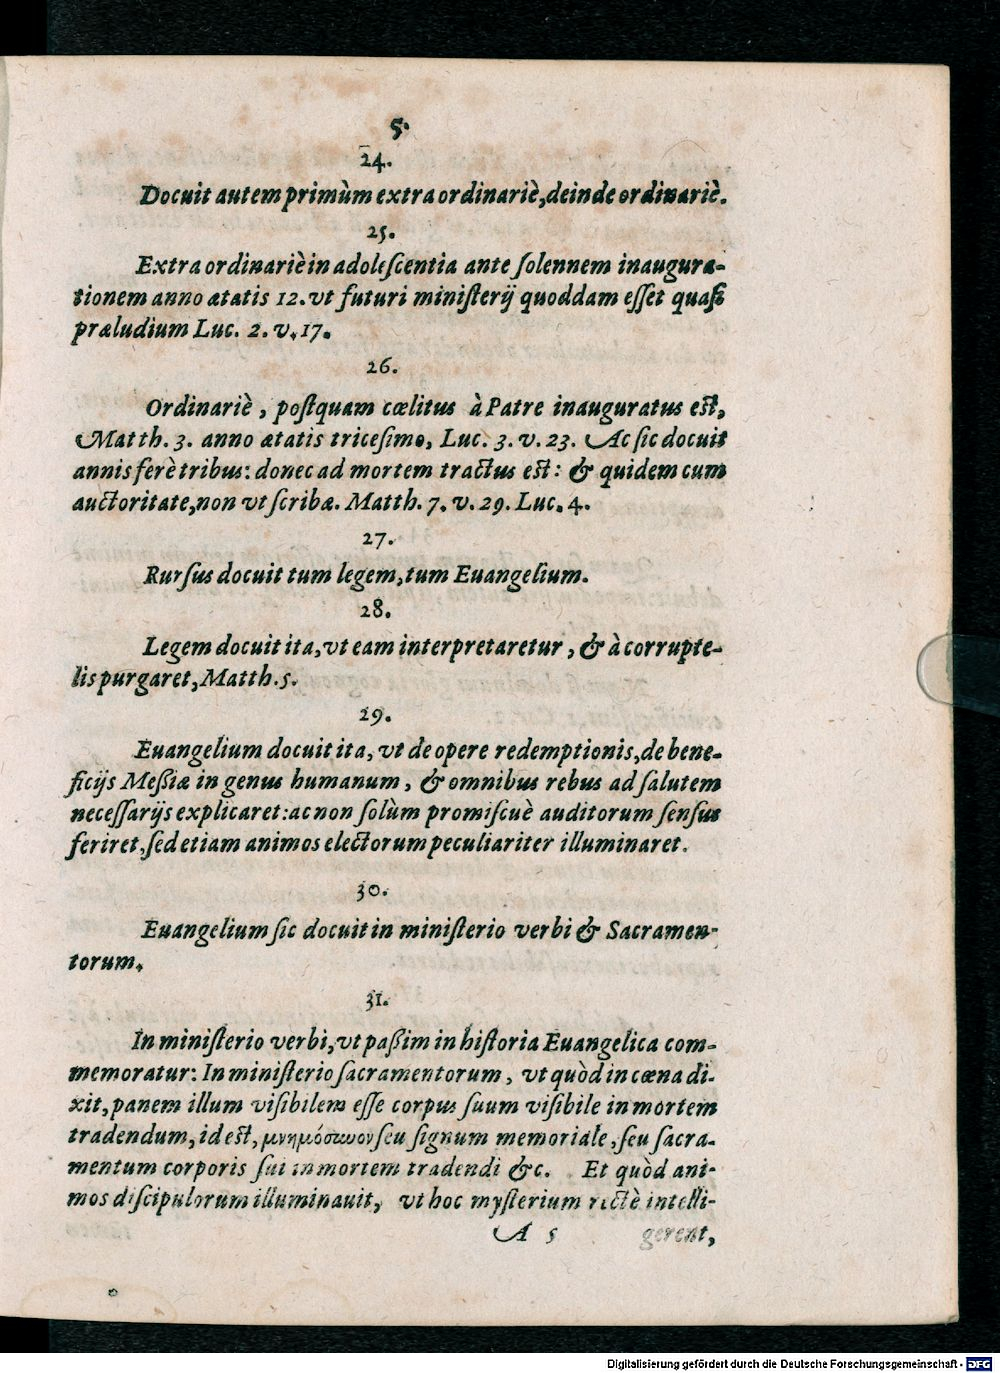 5.
24.
Docuit autem primùm extra ordinariè, deinde ordinariè.
25.
Extra ordinariè in adolescentia ante solennem inaugura-
tionem anno ætatis 12. vt futuri ministerij quoddam esset quasi
præludium Luc. 2. v. 17.
26.
Ordinariè, postquam cœlitus à Patre inauguratus est,
Matth. 3. anno ætatis tricesimo, Luc. 3. v. 23. Ac sic docuit
annis ferè tribus: donec ad mortem tractus est: & quidem cum
auctoritate, non vt scribæ. Matth. 7. v. 29. Luc. 4.
27.
Rursus docuit tum legem, tum Euangelium.
28.
Legem docuit ita, vt eam interpretaretur, & à corrupte-
lis purgaret, Matth. 5.
29.
Euangelium docuit ita, vt de opere redemptionis, de bene-
ficijs Meßiæ in genus humanum, & omnibus rebus ad salutem
necessarijs explicaret: ac non solùm promiscuè auditorum sensus
feriret, sed etiam animos electorum peculiariter illuminaret.
30.
Euangelium sic docuit in ministerio verbi & Sacramen-
torum.
31.
In ministerio verbi, vt paßim in historia Euangelica com-
memoratur: In ministerio sacramentorum, vt quòd in cœna di-
xit, panem illum visibilem esse corpus suum visibile in mortem
tradendum, id est, μνημόσυνον seu signum memoriale, seu sacra-
mentum corporis sui in mortem tradendi &c. Et quòd ani-
mos discipulorum illuminauit, vt hoc mysterium rectè intelli-
A 5 gerent,
Digitalisierung gefördert durch die Deutsche Forschungsgemeinschaft - DFG